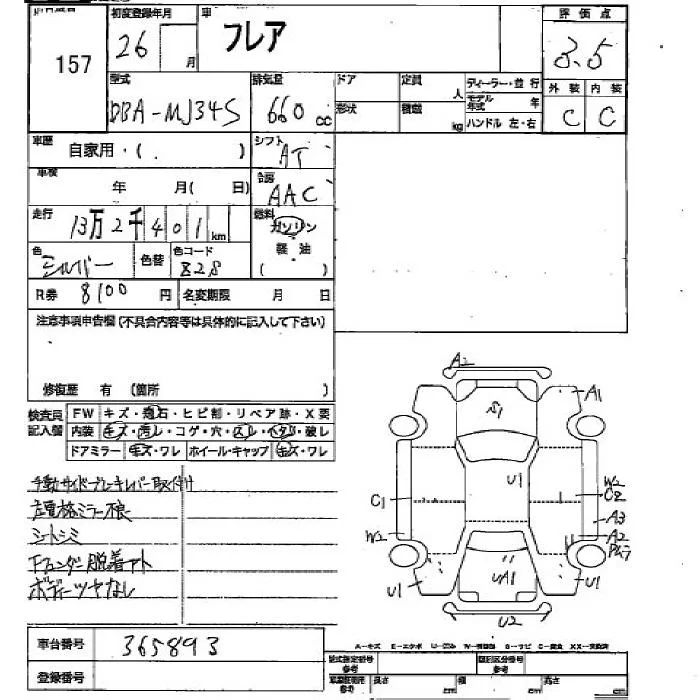 初度登録年月 車 評価点
157 26 月 フレア 3.5
型式 排気量 ドア 定員 人 ディーラー・並行 外装 内装
DBA-MJ34S 660 cc 形状 積載 kg モデル年式 年 C C
ハンドル 左・右
車歴 自家用・( ) シフト AT
車検 年 月( 日) 冷房 AAC
走行 13万2千401km 燃料 ガソリン
軽油
色 シルバー 色替 色コード Z2S ( )
R券 8100 円 名変期限 月 日
注意事項申告欄(不具合内容等は具体的に記入して下さい)
修復歴 有 (箇所 )
検査員記入欄 FW キズ・飛石・ヒビ割・リペア跡・X要
内装 キズ・汚レ・コゲ・穴・スレ・ヘタリ・破レ
ドアミラー キズ・ワレ ホイール・キャップ キズ・ワレ
手動サイドブレーキレバー取付け
左電格ミラー不良
シートシミ
Fフェンダー脱着アト
ボディーツヤなし
A2
A1
S1
U1
C1
W2
C2
W2
A3
A2
U1
UA1
U1
U2
車台番号 365893
登録番号
A-キズ E-エクボ U-凹み W-補修跡 S-サビ C-腐食 XX-交換済
型式指定番号 参考 類別区分番号 参考
参考 長さ cm 幅 cm 高さ cm